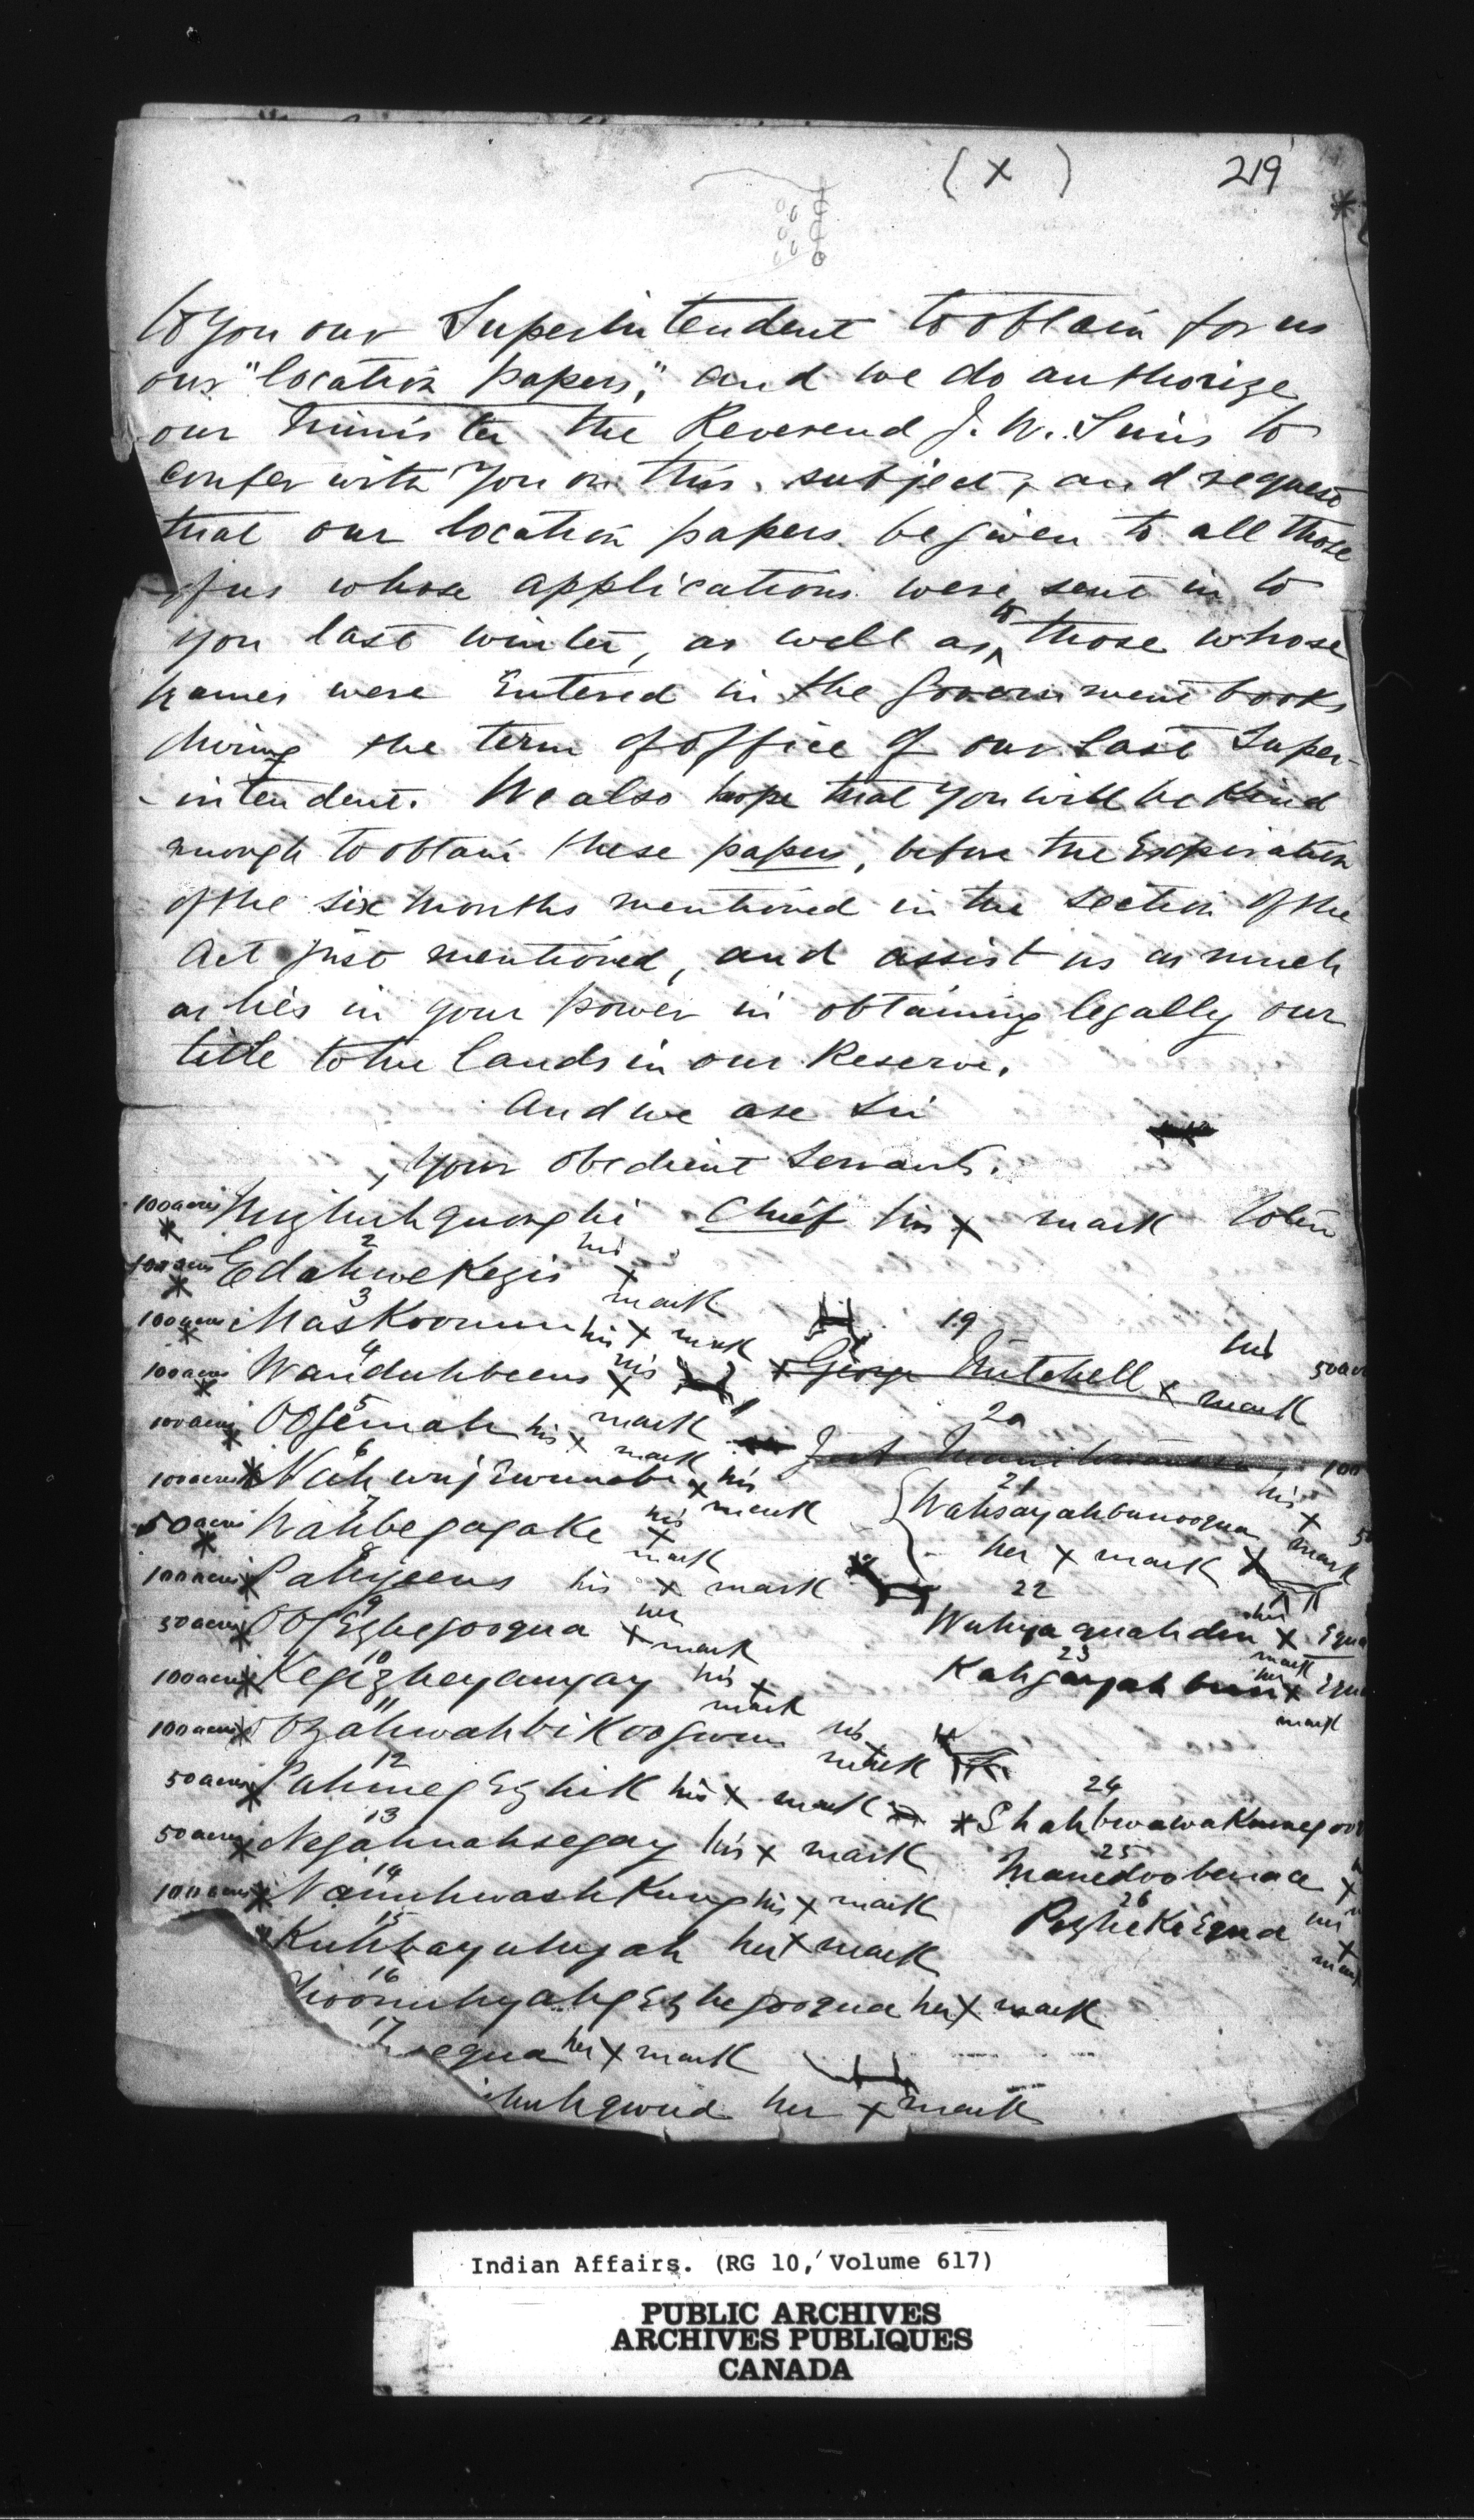 (x) 219
to you our Superintendent to obtain for us
our "location papers," and we do authorize
our Minister the Reverend J. W. Sims to
confer with you on this subject, and request
that our location papers be given to all those
of us whose applications were sent in to
you last winter, as well as to those whose
names were entered in the Government books
during the term of office of our last Super-
-intendent. We also hope that you will be kind
enough to obtain these papers, before the expiration
of the six months mentioned in the section of the
Act just mentioned, and assist us as much
as lies in your power in obtaining legally our
title to the lands in our Reserve.
And we are Sir
Your obedient Servants.
100 acres Chief his x mark
100 acres 2 Edahwekezis his x mark
100 acres 3 Maskoonun his x mark
100 acres 4 Wanduhbeens his x mark
100 acres 5 Oogemah his x mark
100 acres 6 his x mark
50 acres 7 Wahbegagake his x mark
100 acres 8 Pahyeens his x mark
50 acres 9 Oogezhegooqua her x mark
100 acres 10 Kegizheyamgay his x mark
100 acres 11 Ozahwahbikoogwun his x mark
50 acres 12 Pahmegezhik his x mark
50 acres 13 Negahnahsegay his x mark
100 acres 14 his x mark
15 Kuhbayuhyah her x mark
16 her x mark
17 equa her x mark
her x mark
19
George Mitchell his x mark
20
100
21
Wahsayahbunooqua his x mark
her x mark
22
Wuhyaquahdun her x mark Equa
23
Kahgayahbun her x mark
24
Shahbwawakumegoo
25
Manedoobenace x
26
PezhekiEqua her x mark
Indian Affairs. (RG 10, Volume 617)
PUBLIC ARCHIVES
ARCHIVES PUBLIQUES
CANADA